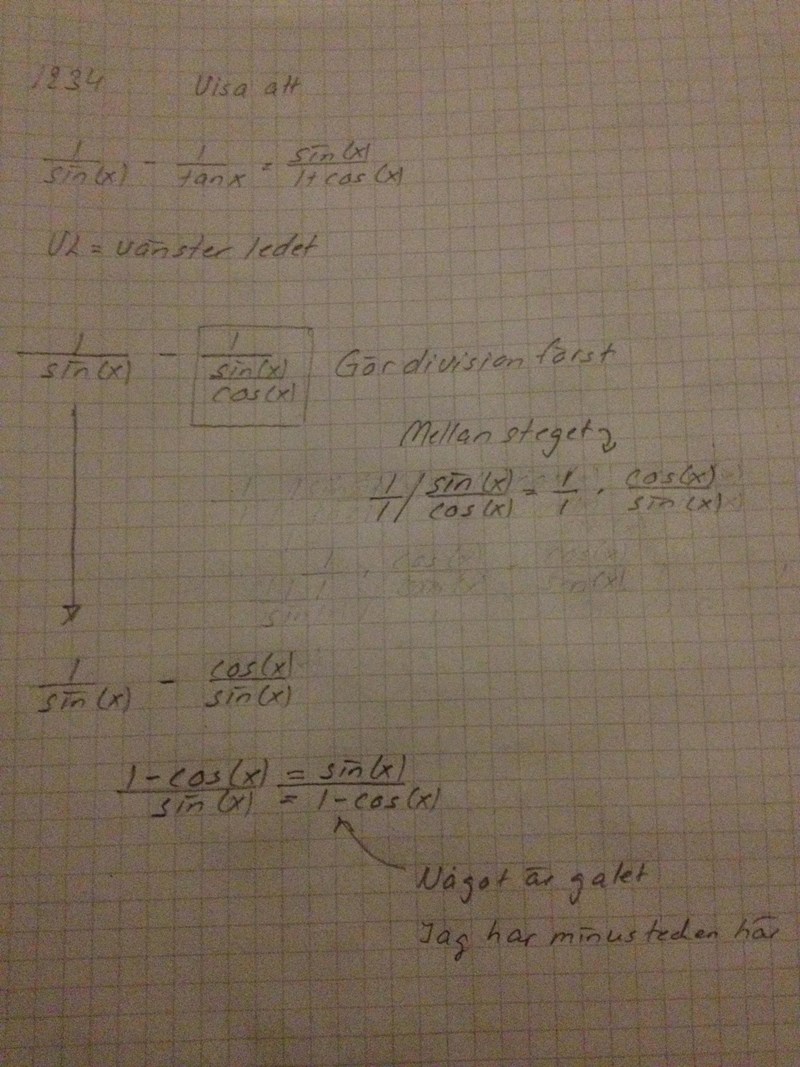 1234 Visa att
1/sin(x) - 1/tanx = sin(x)/1+cos(x)
VL = vänster ledet
1/sin(x) - 1/(sin(x)/cos(x)) Gör division först
Mellan steget
1/1 / sin(x)/cos(x) = 1/1 · cos(x)/sin(x)
1/sin(x) - cos(x)/sin(x)
1-cos(x)/sin(x) = sin(x)/1-cos(x)
Något är galet
Jag har minustecken här